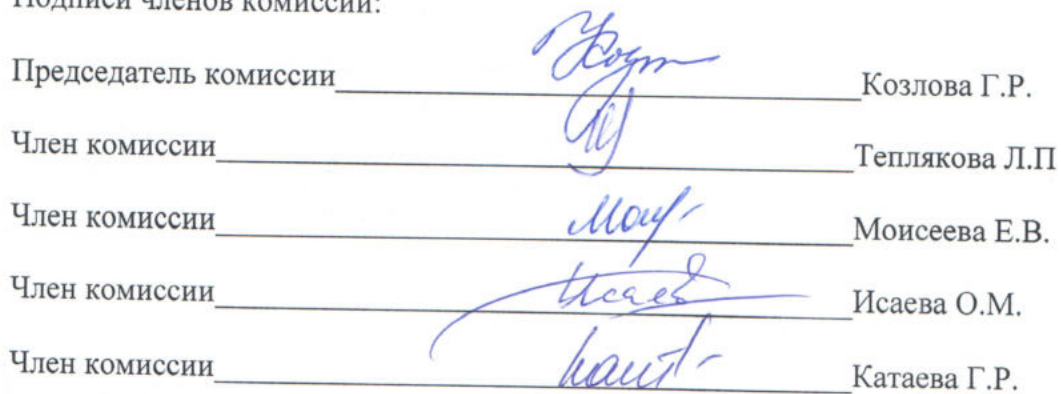 Подписи членов комиссии:
Председатель комиссии Козлова Г.Р.
Член комиссии Теплякова Л.П
Член комиссии Моисеева Е.В.
Член комиссии Исаева О.М.
Член комиссии Катаева Г.Р.